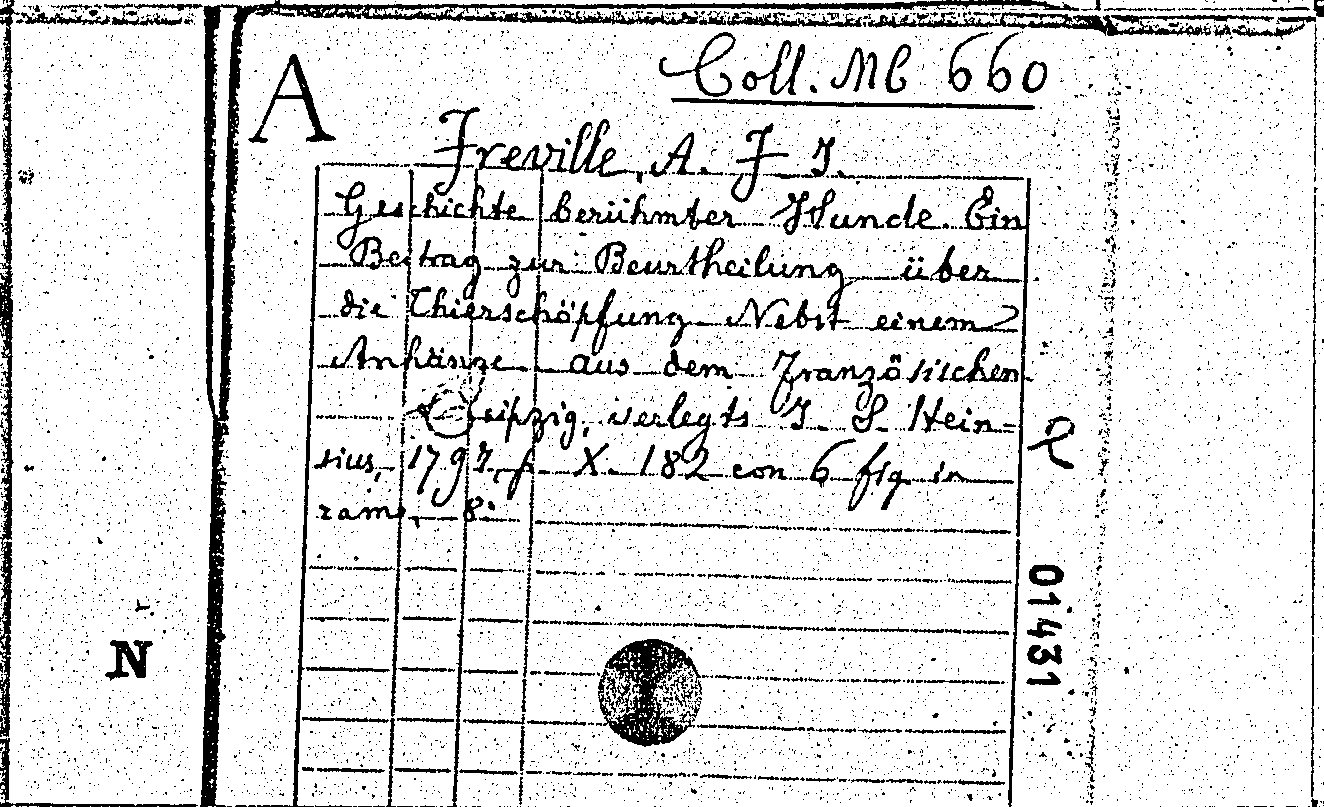 A
Coll. Mb 660
Freville, A. F. J.
Geschichte berühmter Hunde. Ein
Beitrag zur Beurtheilung über
die Thierschöpfung Nebst einem
Anhänge aus dem Französischen
Leipzig, verlegts J. S. Hein-
sius, 1797, p. X. 182 con 6 fig. in
rame, 8°
N
01431